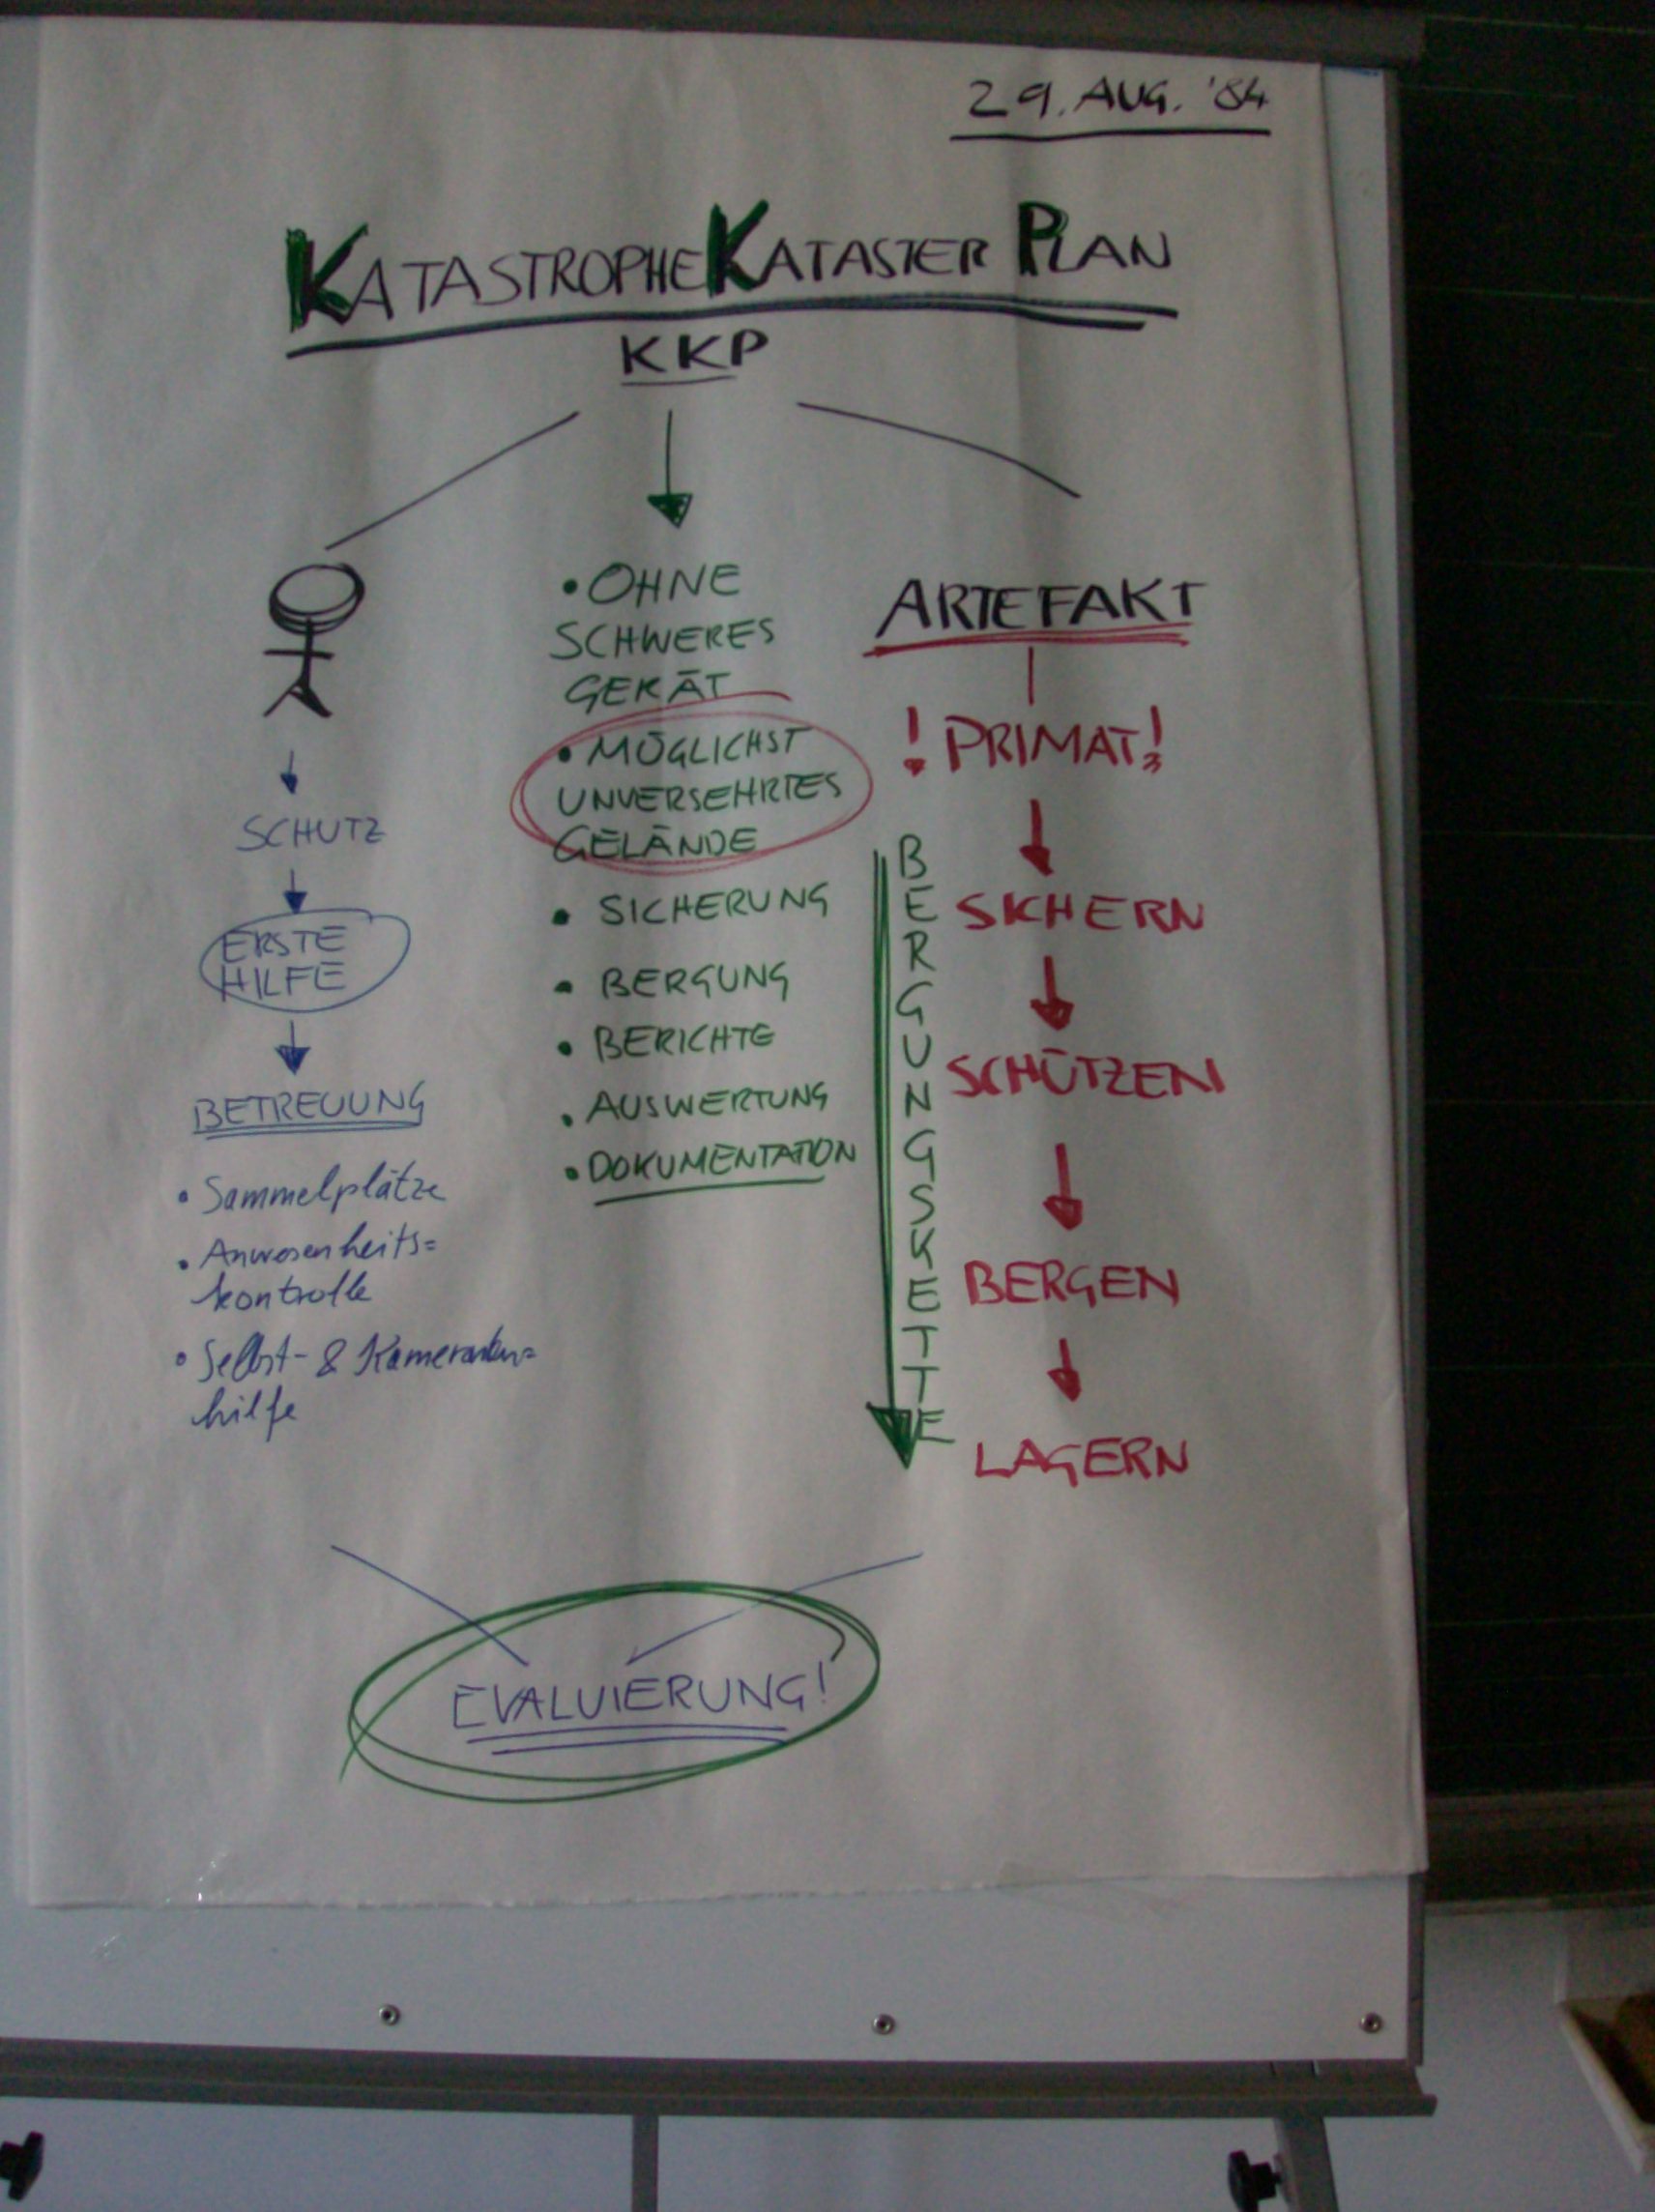 29. AUG. '84
KATASTROPHEKATASTER PLAN
KKP
SCHUTZ
ERSTE
HILFE
BETREUUNG
• Sammelplätze
• Anwesenheits=
kontrolle
• Selbst- & Kameraden=
hilfe
• OHNE
SCHWERES
GERÄT
• MÖGLICHST
UNVERSEHRTES
GELÄNDE
• SICHERUNG
• BERGUNG
• BERICHTE
• AUSWERTUNG
• DOKUMENTATION
BERGUNGSKETTE
ARTEFAKT
! PRIMAT!
SICHERN
SCHÜTZEN
BERGEN
LAGERN
EVALUIERUNG!